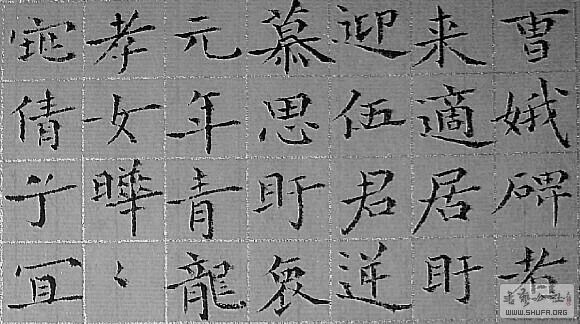 曹娥碑者
来適居盱
迎伍君逆
慕思盱哀
元年青龍
孝女曄〻
倩兮宜
WWW.SHUFA.ORG